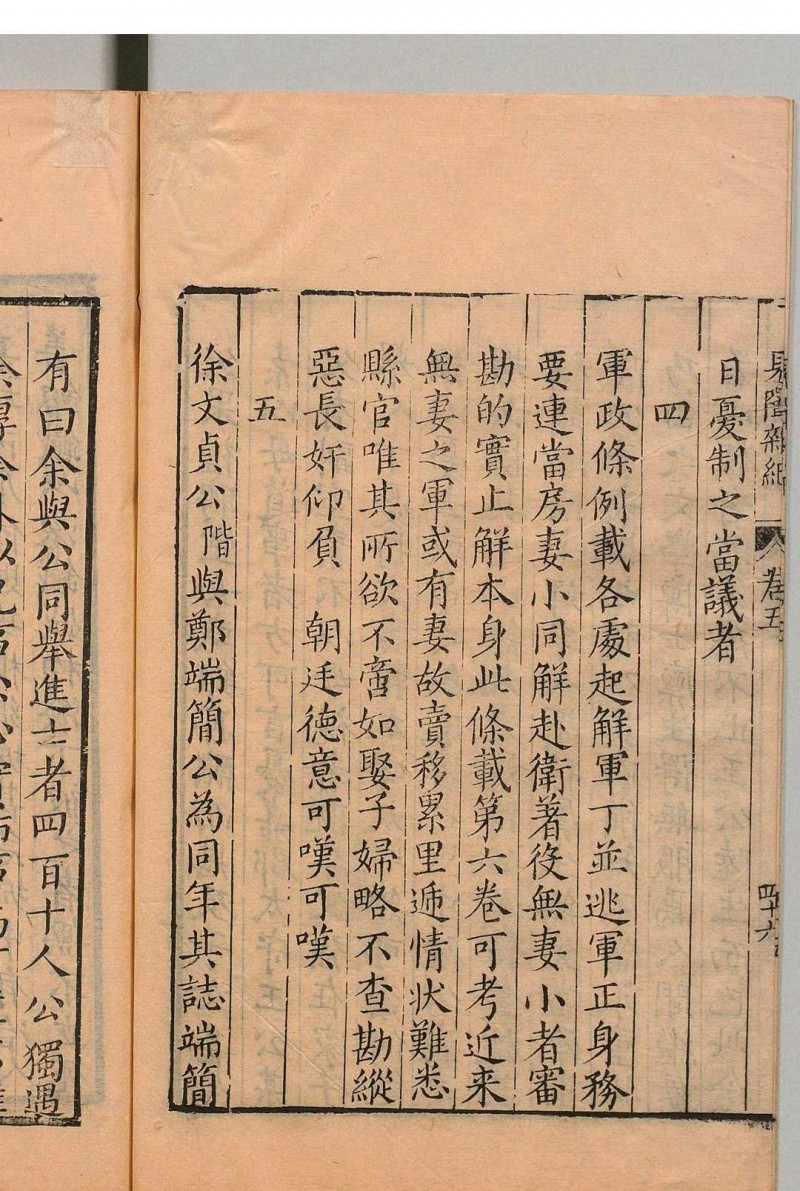 見聞雜紀 卷五 四十六
日憂制之當議者
四
軍政條例載各處起解軍丁並逃軍正身務
要連當房妻小同解赴衛著役無妻小者審
勘的實止解本身此條載第六卷可考近来
無妻之軍或有妻故賣移累里遞情状難悉
縣官唯其所欲不啻如娶子婦略不查勘縱
惡長奸仰負 朝廷德意可嘆可嘆
五
徐文貞公階與鄭端簡公為同年其誌端簡
有曰余與公同舉進士者四百十人公獨遇